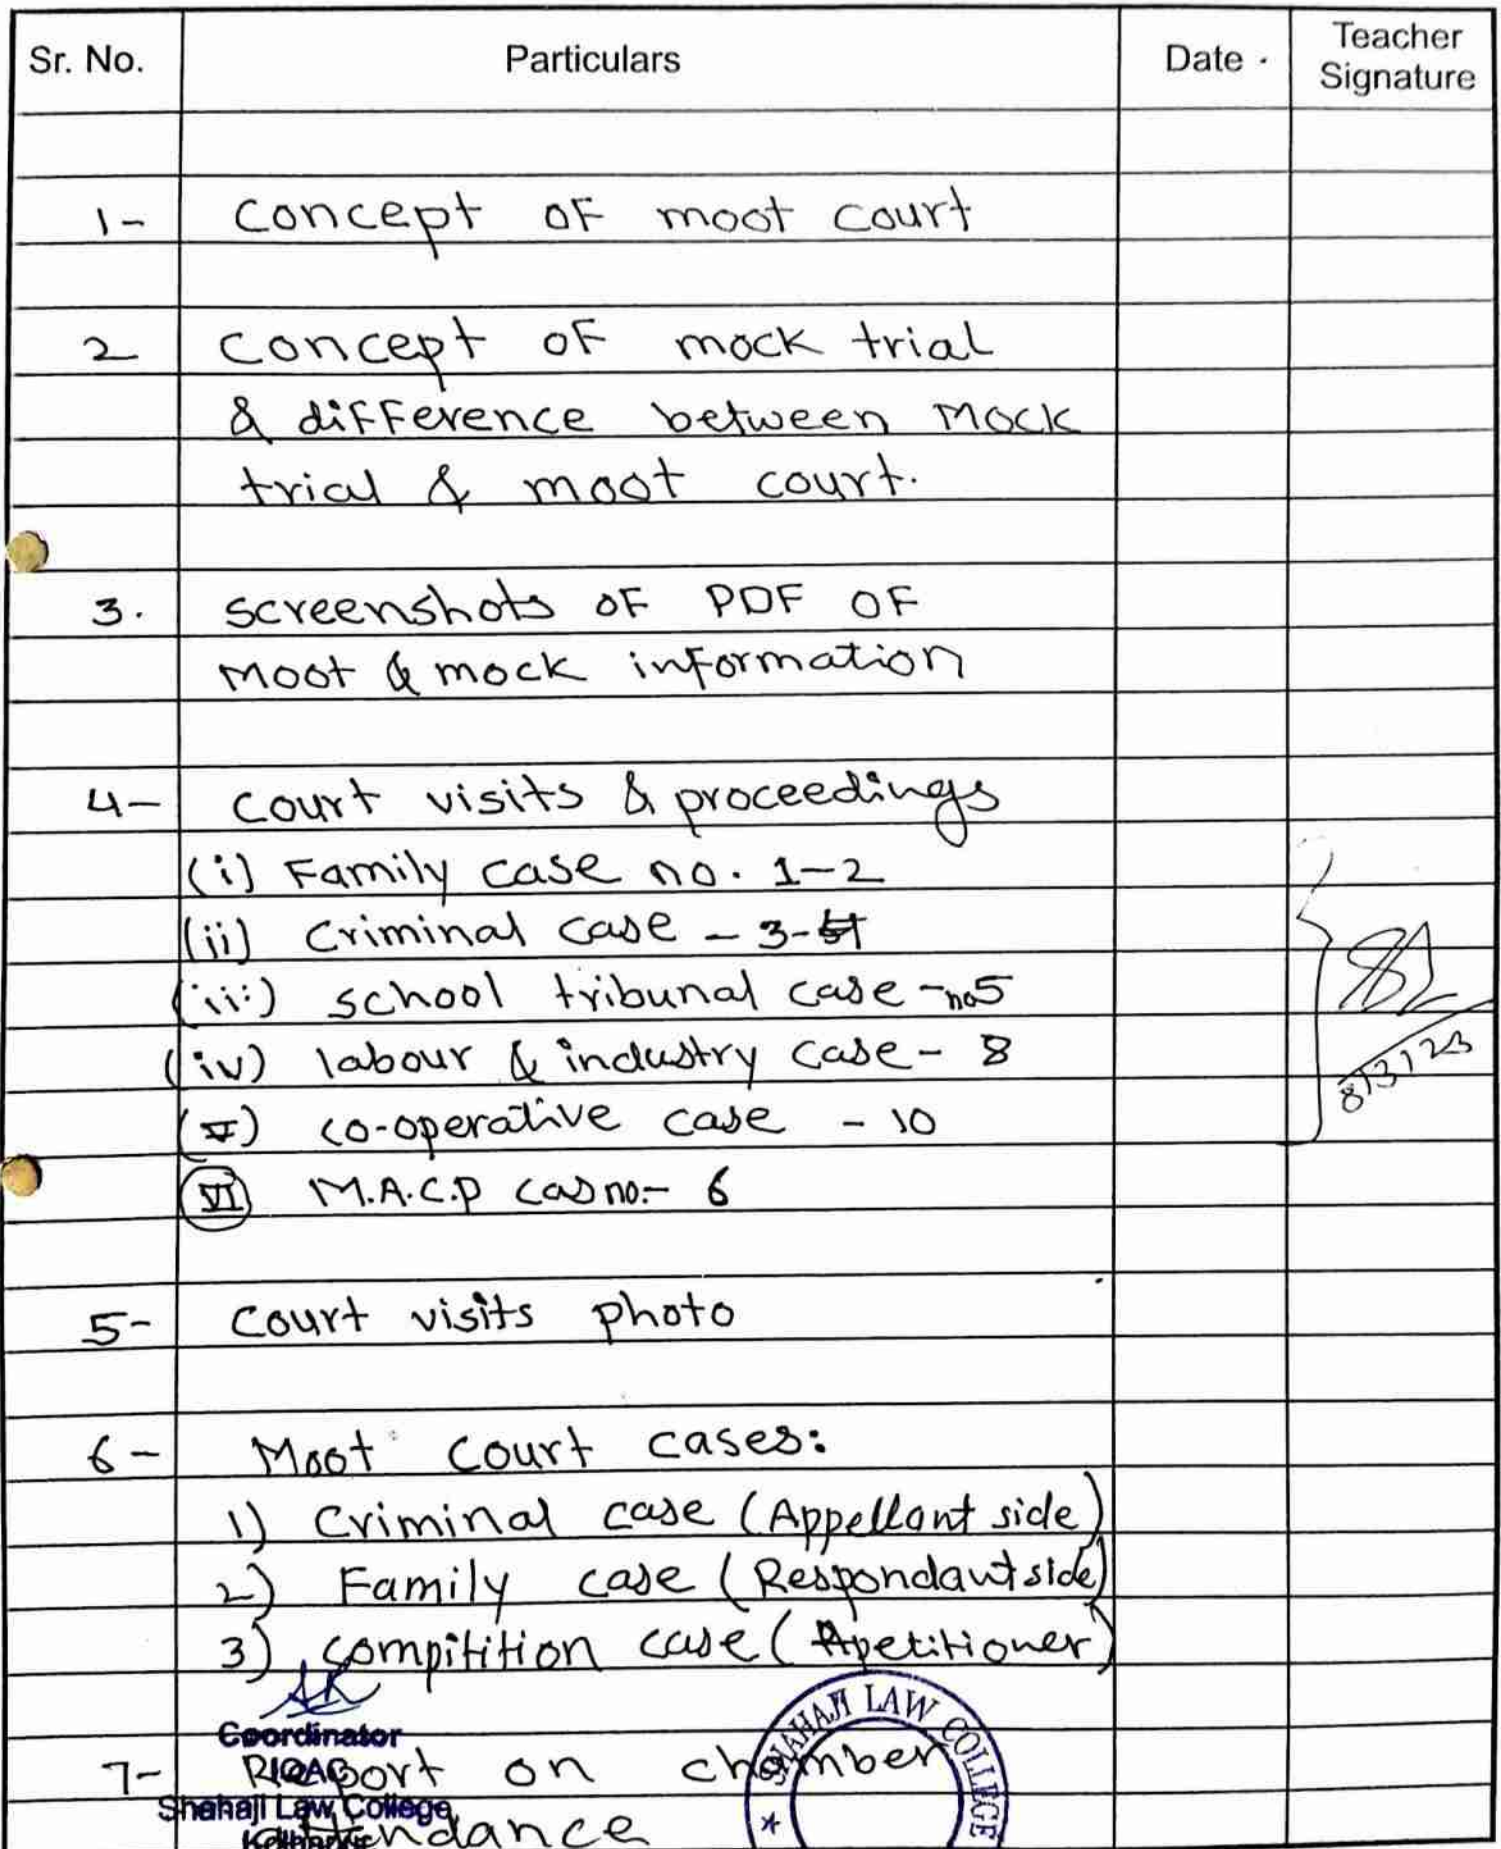 Sr. No. Particulars Date Teacher Signature
1- concept OF moot court
2 concept OF mock trial
& difference between Mock
trial & moot court.
3. screenshots OF PDF OF
Moot & mock information
4- court visits & proceedings
(i) Family case no. 1-2
(ii) Criminal case - 3-
(iii) school tribunal case - no 5
(iv) labour & industry case - 8
(V) co-operative case - 10
VI M.A.C.P cas no:- 6
8/3/23
5- court visits photo
6- Moot court cases:
1) Criminal case (Appellant side)
2) Family case (Respondant side)
3) compitition case (Apetitioner)
Coordinator
IQAC
Shahaji Law College
Kolhapur
SHAHAJI LAW COLLEGE
7- Report on chamber
attendance